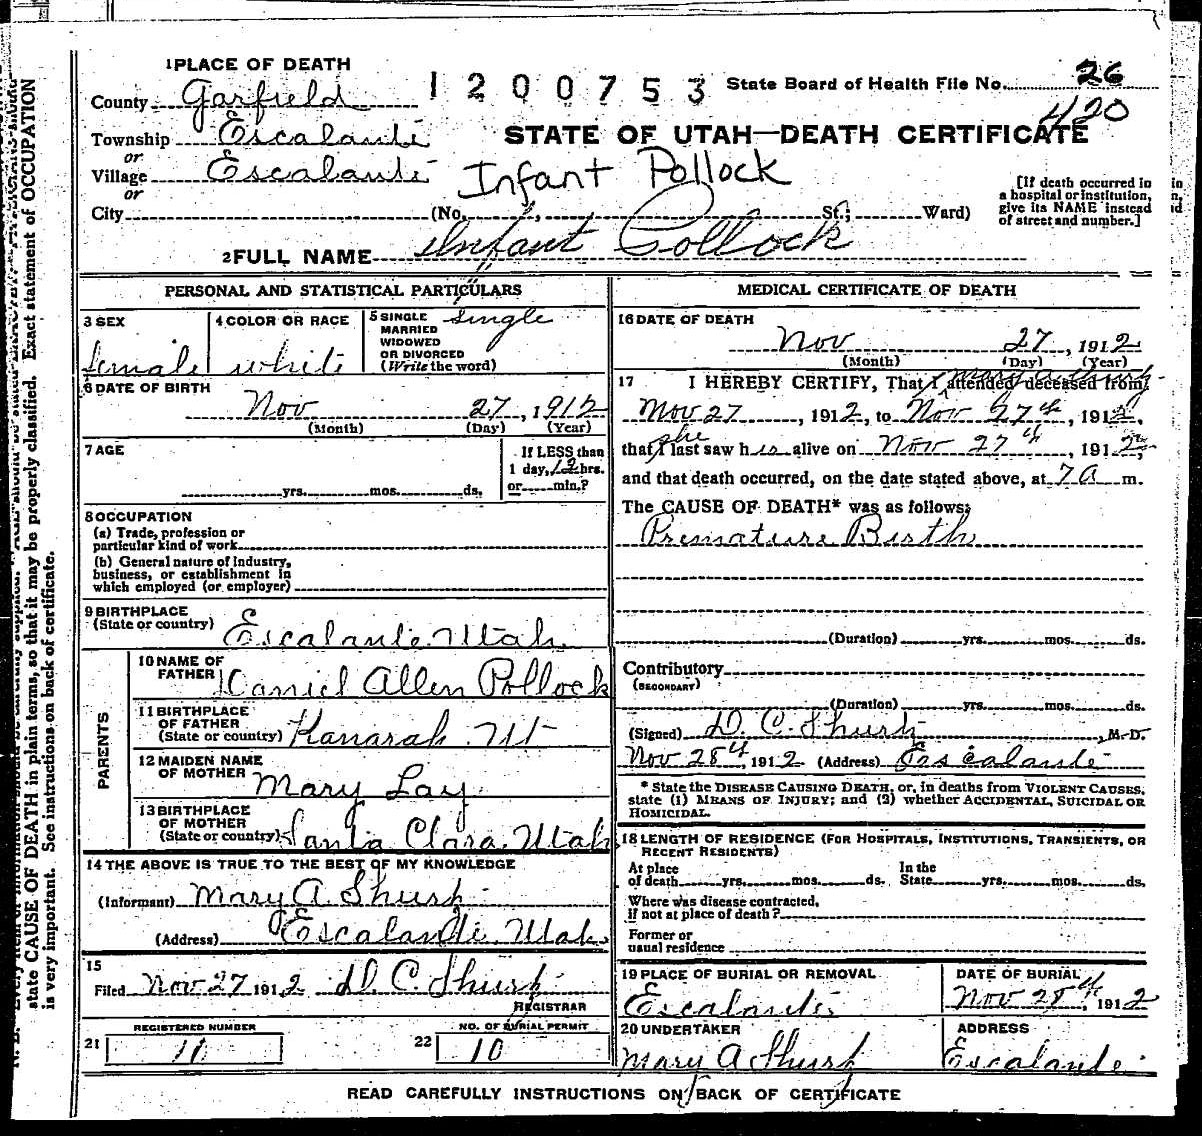 1 PLACE OF DEATH
1200753
State Board of Health File No. 26
420
County Garfield
Township Escalante
or
Village Escalante
or
City (No. St.; Ward)
STATE OF UTAH—DEATH CERTIFICATE
Infant Pollock
[If death occurred in
a hospital or institution,
give its NAME instead
of street and number.]
2 FULL NAME Infant Pollock
PERSONAL AND STATISTICAL PARTICULARS
3 SEX
female
4 COLOR OR RACE
white
5 SINGLE
MARRIED
WIDOWED
OR DIVORCED
(Write the word)
single
6 DATE OF BIRTH
Nov 27, 1912
(Month) (Day) (Year)
7 AGE
yrs. mos. ds.
If LESS than
1 day, 12 hrs.
or min.?
8 OCCUPATION
(a) Trade, profession or
particular kind of work
(b) General nature of Industry,
business, or establishment in
which employed (or employer)
9 BIRTHPLACE
(State or country) Escalante Utah.
PARENTS
10 NAME OF
FATHER Daniel Allen Pollock
11 BIRTHPLACE
OF FATHER
(State or country) Kanarah. Ut
12 MAIDEN NAME
OF MOTHER Mary Lay
13 BIRTHPLACE
OF MOTHER
(State or country) Santa Clara, Utah
14 THE ABOVE IS TRUE TO THE BEST OF MY KNOWLEDGE
(Informant) Mary A Shurtz
(Address) Escalante, Utah.
15
Filed Nov 27 1912 D. C. Shurtz
REGISTRAR
REGISTERED NUMBER
21 11
NO. OF BURIAL PERMIT
22 10
MEDICAL CERTIFICATE OF DEATH
16 DATE OF DEATH
Nov 27, 1912
(Month) (Day) (Year)
17 I HEREBY CERTIFY, That I attended deceased from
Mary A Shurtz
Nov 27, 1912, to Nov 27th, 1912,
she
that I last saw his alive on Nov 27th, 1912,
and that death occurred, on the date stated above, at 7 a m.
The CAUSE OF DEATH* was as follows:
Premature Birth
(Duration) yrs. mos. ds.
Contributory
(SECONDARY)
(Duration) yrs. mos. ds.
(Signed) D. C. Shurtz, M. D.
Nov 28th, 1912 (Address) Escalante
* State the DISEASE CAUSING DEATH, or, in deaths from VIOLENT CAUSES,
state (1) MEANS OF INJURY; and (2) whether ACCIDENTAL, SUICIDAL OR
HOMICIDAL.
18 LENGTH OF RESIDENCE (FOR HOSPITALS, INSTITUTIONS, TRANSIENTS, OR
RECENT RESIDENTS)
At place
of death yrs. mos. ds.
In the
State yrs. mos. ds.
Where was disease contracted,
if not at place of death?
Former or
usual residence
19 PLACE OF BURIAL OR REMOVAL
Escalante
DATE OF BURIAL
Nov 28th, 1912
20 UNDERTAKER
Mary A Shurtz
ADDRESS
Escalante
READ CAREFULLY INSTRUCTIONS ON BACK OF CERTIFICATE
state CAUSE OF DEATH in plain terms, so that it may be properly classified. Exact statement of OCCUPATION
is very important. See instructions on back of certificate.